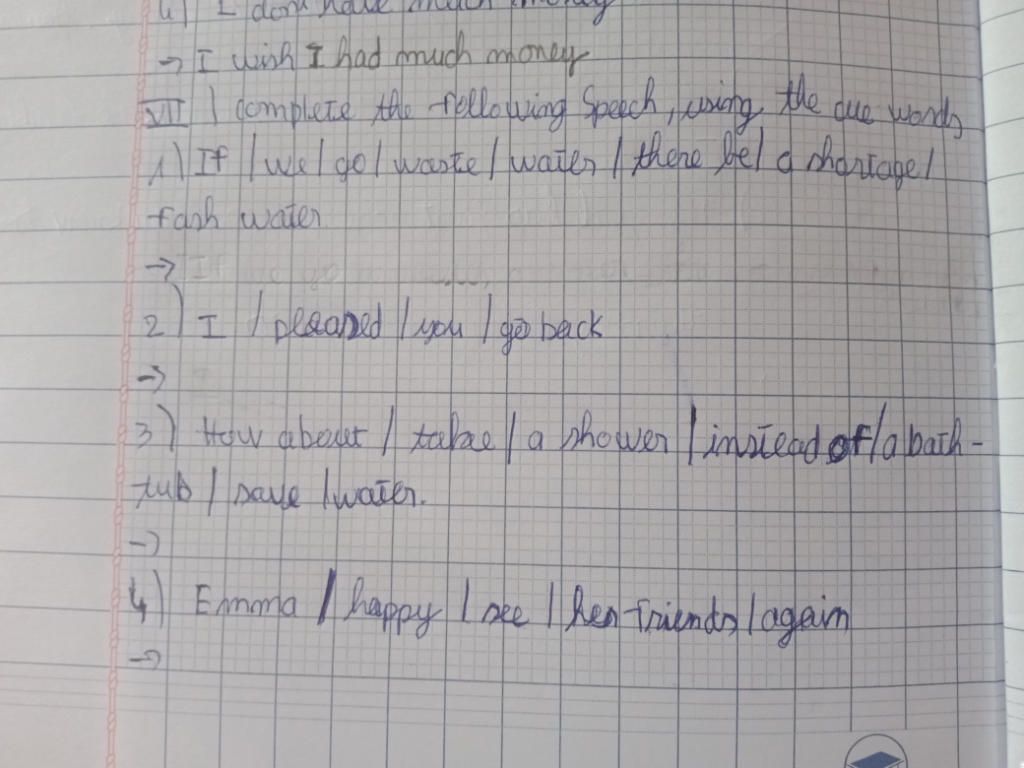 4) I don't have much money
→ I wish I had much money
VII) complete the following Speech, using the cue words
1) If / we / go / waste / water / there be / a shortage /
fash water
→
2) I / pleased / you / go back
→
3) How about / take / a shower / instead of / a bath-
tub / save / water.
→
4) Emma / happy / see / her friends / again
→